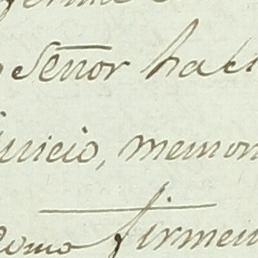 Señor hac
juicio, memor
como firmem